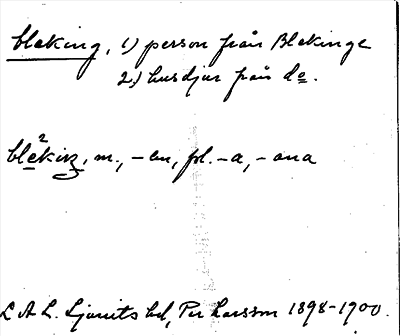 bleking, 1) person från Blekinge
2) husdjur från do.
ble²kiŋ, m., -en, pl. -a, -ana
L A L. Ljunits hd, Per Larsson 1898-1900.